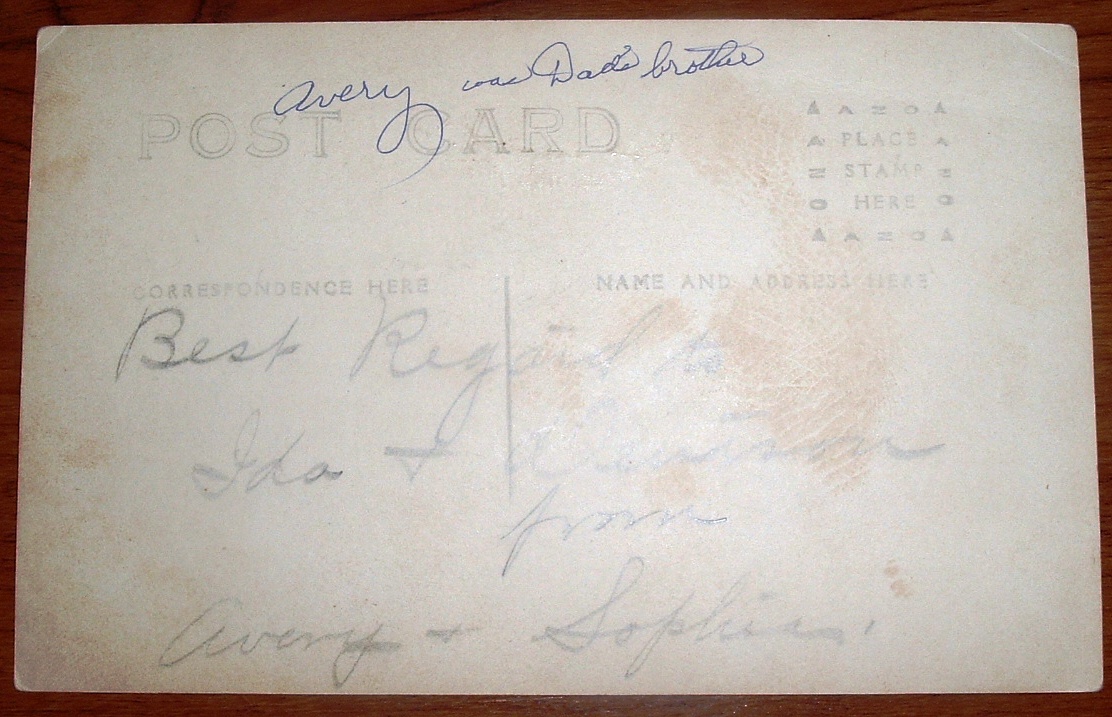 Avery was Dad's brother
POST CARD
AZO
PLACE
STAMP
HERE
AZO
AZO
AZO
CORRESPONDENCE HERE
NAME AND ADDRESS HERE
Best Regard to
Ida +
from
Avery + Sophia.